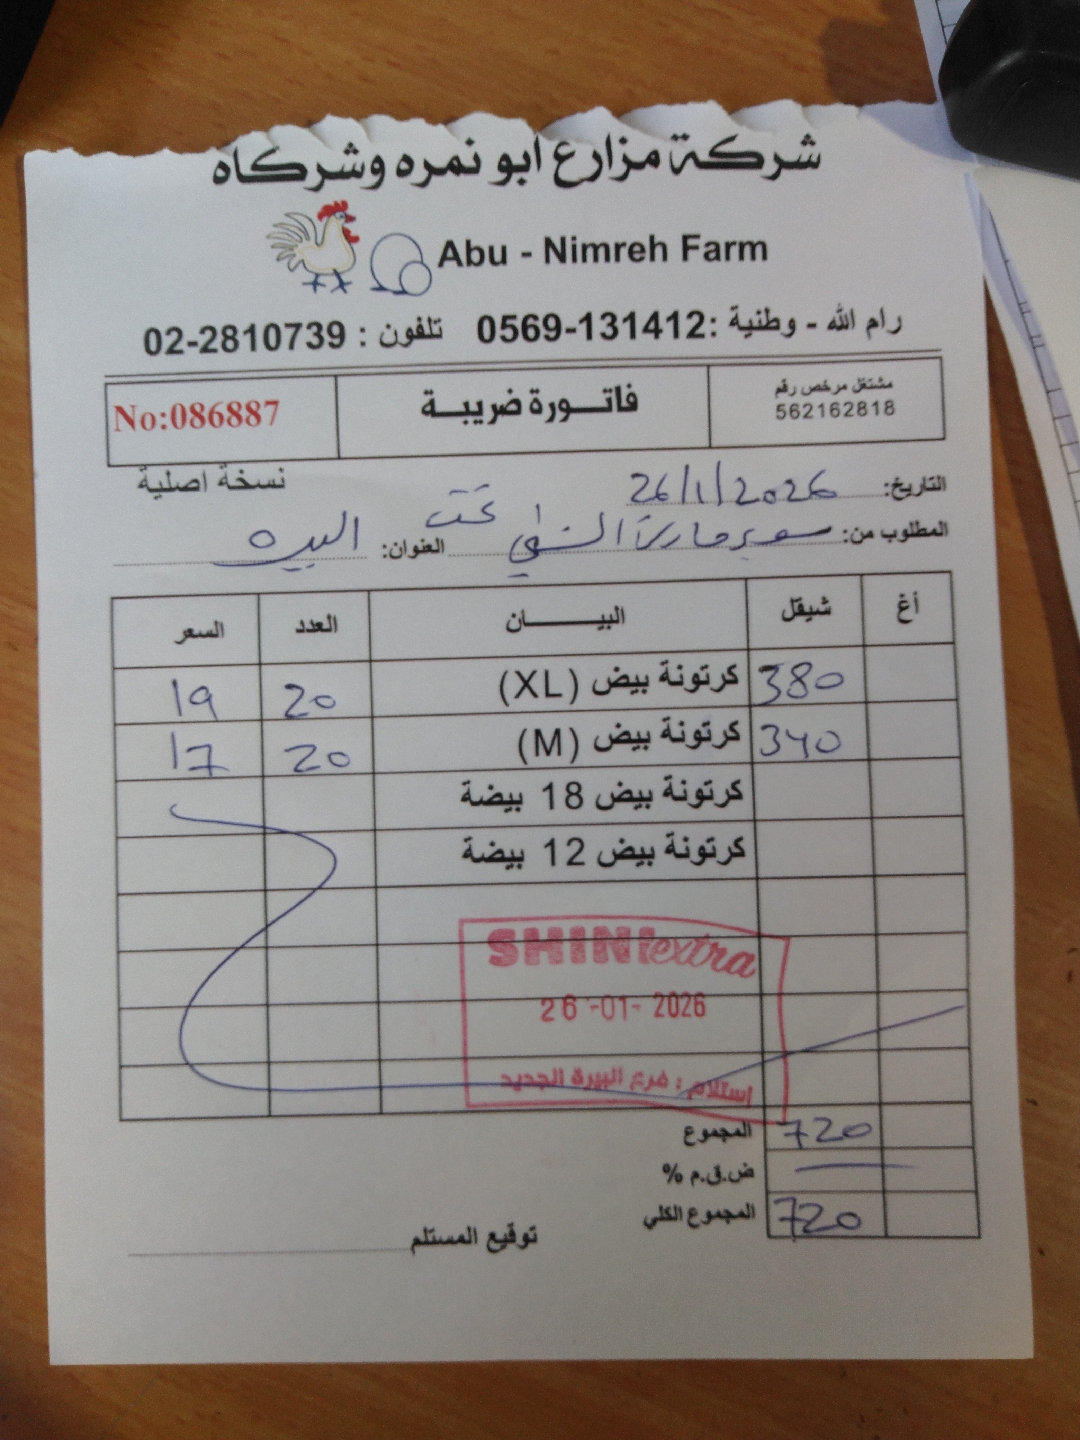 شركة مزارع ابو نمره وشركاه
Abu - Nimreh Farm
رام الله - وطنية :0569-131412 تلفون : 02-2810739
مشتغل مرخص رقم
562162818
فاتورة ضريبة
No:086887
نسخة اصلية
التاريخ: 26/1/2026
المطلوب من: سوبر ماركت الشني تحت العنوان: البيره
أغ شيقل البيان العدد السعر
380 كرتونة بيض (XL) 20 19
340 كرتونة بيض (M) 20 17
كرتونة بيض 18 بيضة
كرتونة بيض 12 بيضة
SHINI extra
26-01-2026
إستلام : فرع البيرة الجديد
المجموع 720
ض.ق.م %
المجموع الكلي 720
توقيع المستلم